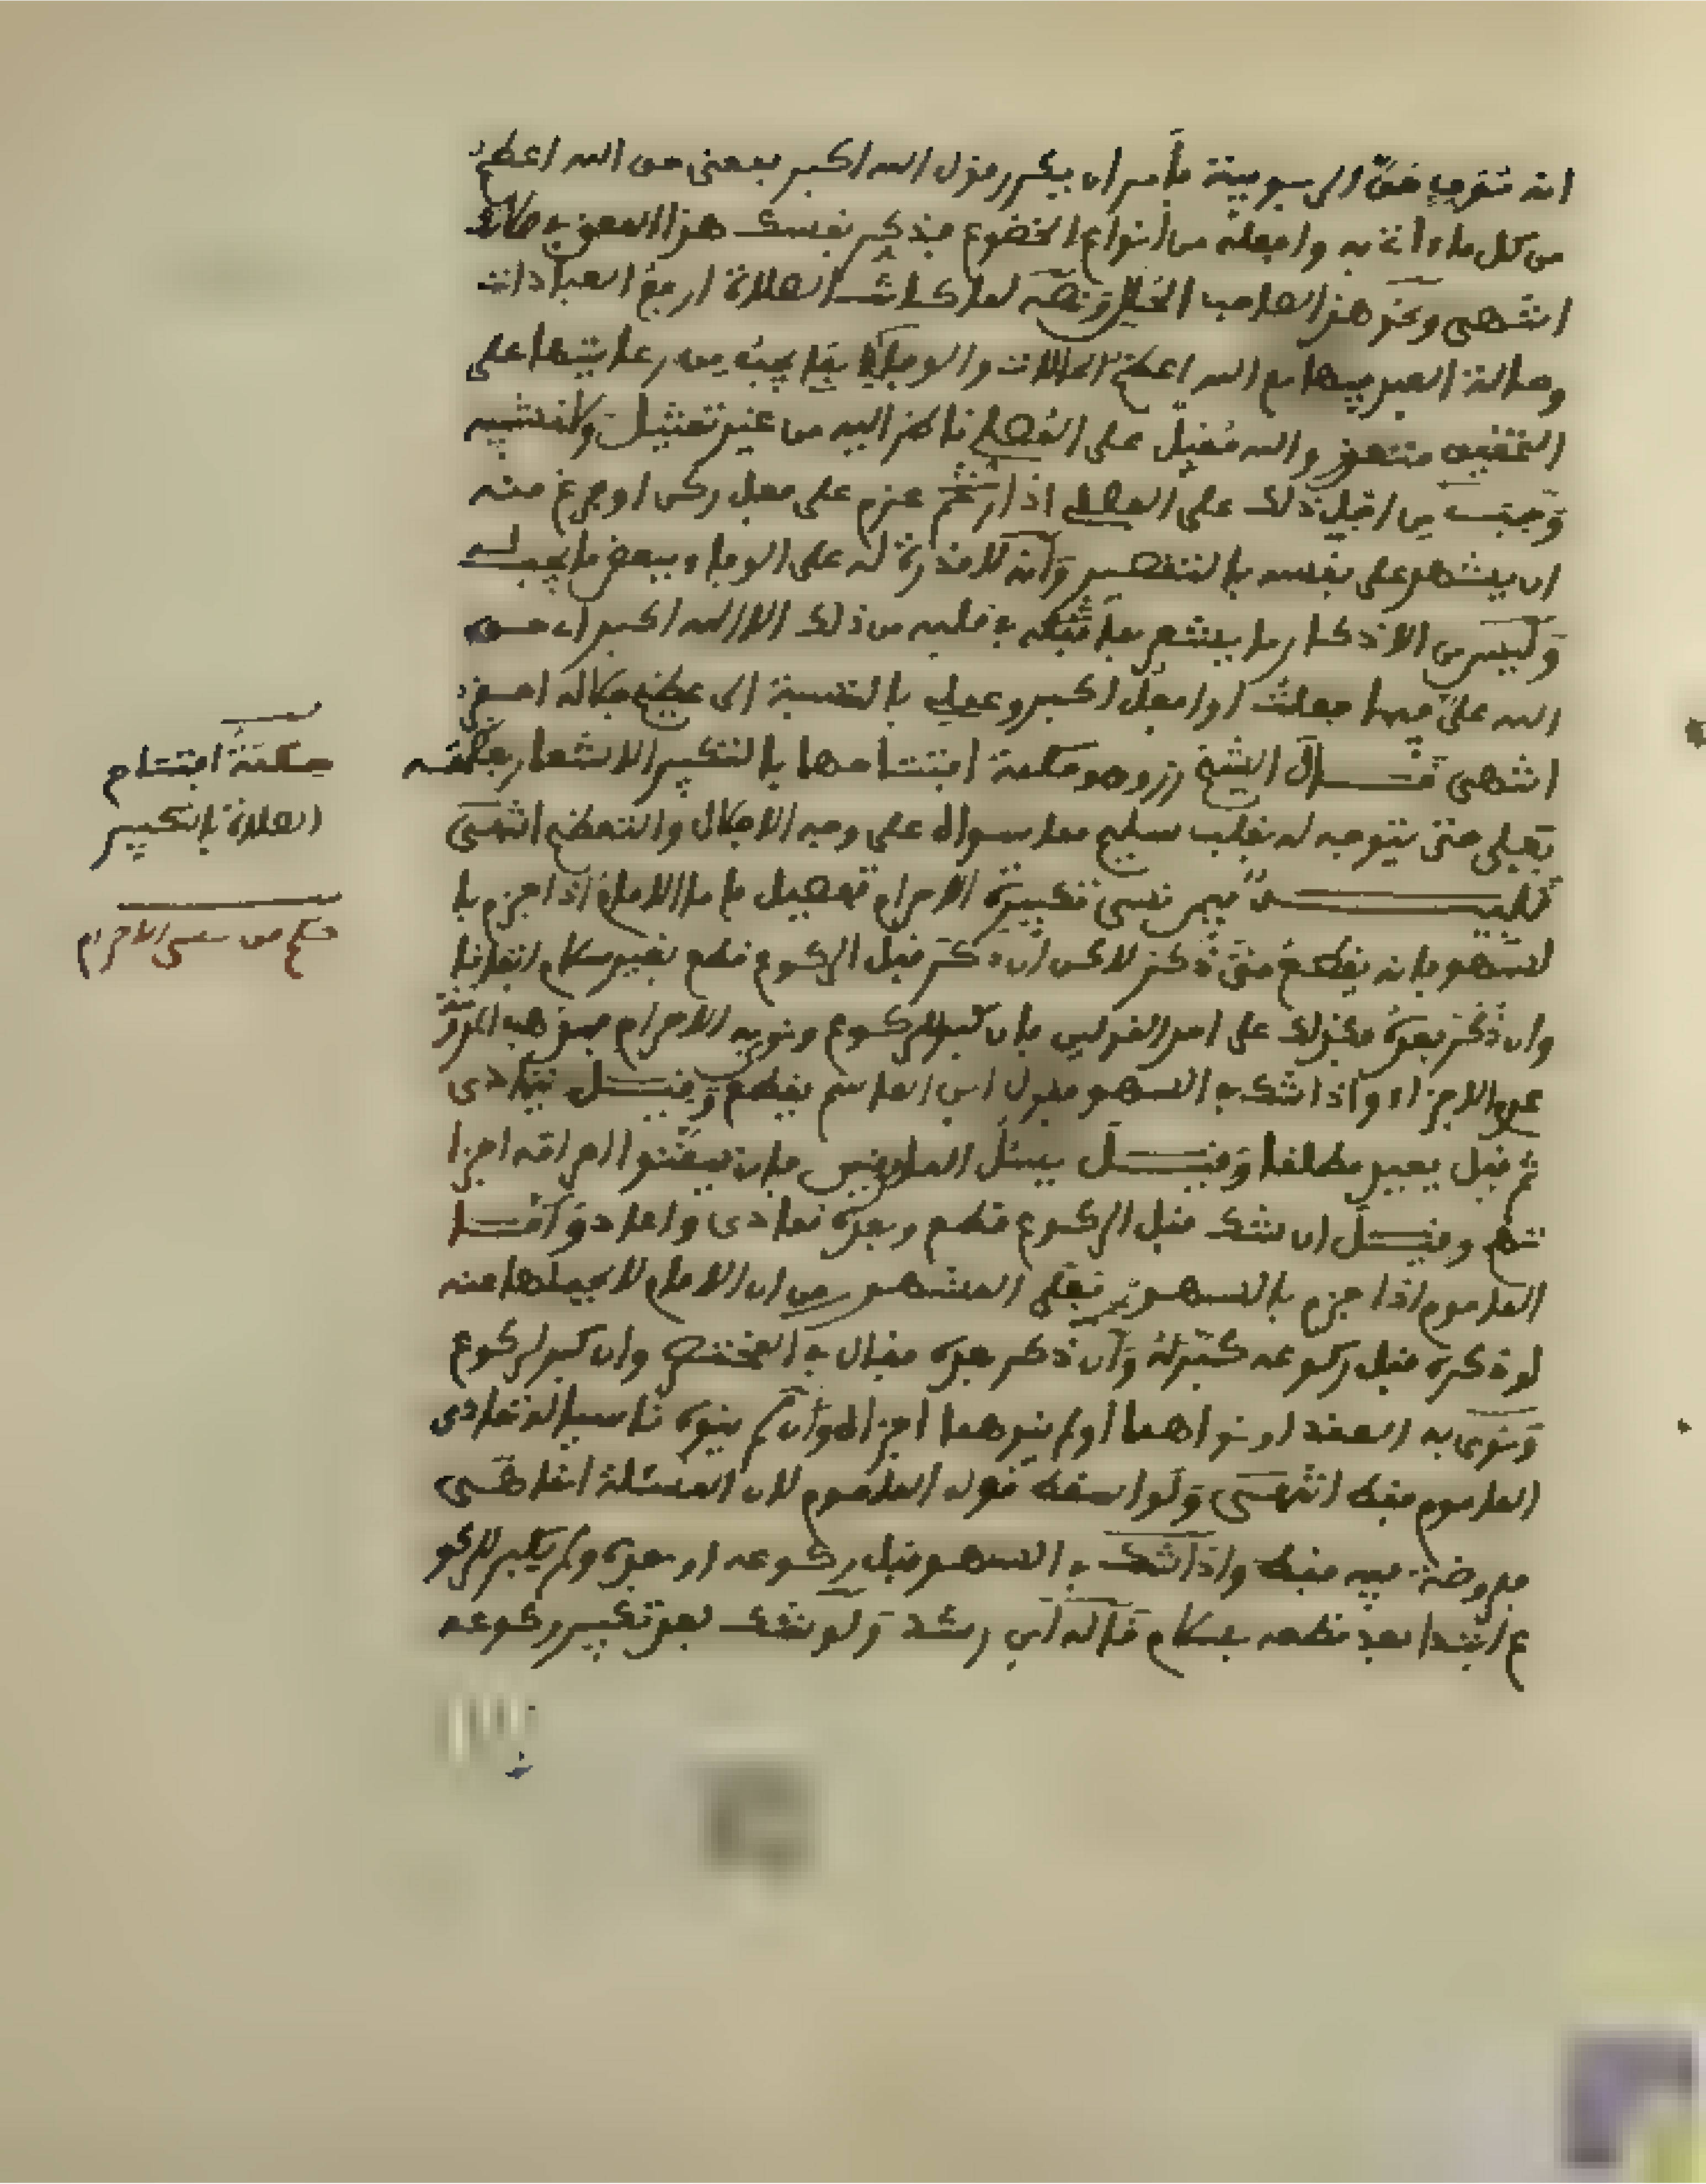 من كل ما وافعله من انواع الخضوع فذكر نفسك هذا المعنى في صلاتك
انتهى ونحو هذا لصاحب الحلل ونصه لما كانت الصلاة ارفع العبادات
وحالة العبد فيها مع الله اعظم الحالات والوفاء بما يجب من رعايتها على
التحقيق متعذر والله مقبل على المصلي ناظر اليه من غير تمثيل ولا تشبيه
وجب من اجل ذلك على المصلي اذا عزم على فعل ركن او فرغ منه
ان يشهد على نفسه بالتقصير وانه لا قدرة له على الوفاء ببعض ما يجب لله
وليس من الاذكار ما يشعر بما في قلبه من ذلك الا الله اكبر اي حق
الله علي فيما فعلت او افعل اكبر وعملي بالنسبة الى عظيم جلاله
انتهى قال الشيخ زروق وحكمة افتتاحها بالتكبير الاشعار بعظمته
تعلى حتى يتوجه له بقلب سليم مما سواه على وجه الاجلال والتعظيم انتهى
تنبيه فيمن نسي تكبيرة الاحرام تفصيل فاما الامام اذا جزم با
لسهو فانه يقطع متى ذكر لاكن ان ذكر قبل الركوع قطع بغير سلام اتفاقا
وان ذكر بعده فكذلك على احد القولين فان كبر للركوع ونوى به الاحرام فمذهب المدونة
عدم الاجزاء واذا شك في السهو فقول ابن القاسم يقطع وقيل يتمادى
ثم قيل يعيد مطلقا وقيل يسئل المامومين فان تيقنوا احرامه اجزا
تهم وقيل ان شك قبل الركوع قطع وبعده تمادى واعاد واما
الماموم اذا جزم بالسهو فعلى المشهور من ان الامام لا يحملها عنه
لو ذكره قبل ركوعه كبر له وان ذكر بعده فقال في المختصر وان كبر لركوع
ونوى به العقد او نواهما او لم ينوهما اجزاه وان لم ينوه ناسيا له تمادى
الماموم فقط انتهى ولو اسقط قوله الماموم لان المسئلة انما هي
مفروضة فيه فقط واذا شك في السهو قبل ركوعه او بعده ولم يكبر للركو
ع ابتدا بعد قطعه بسلام قاله ابن رشد ولو شك بعد تكبير ركوعه
حكمة افتتاح
الصلاة بالتكبير
حكم من نسي الاحرام